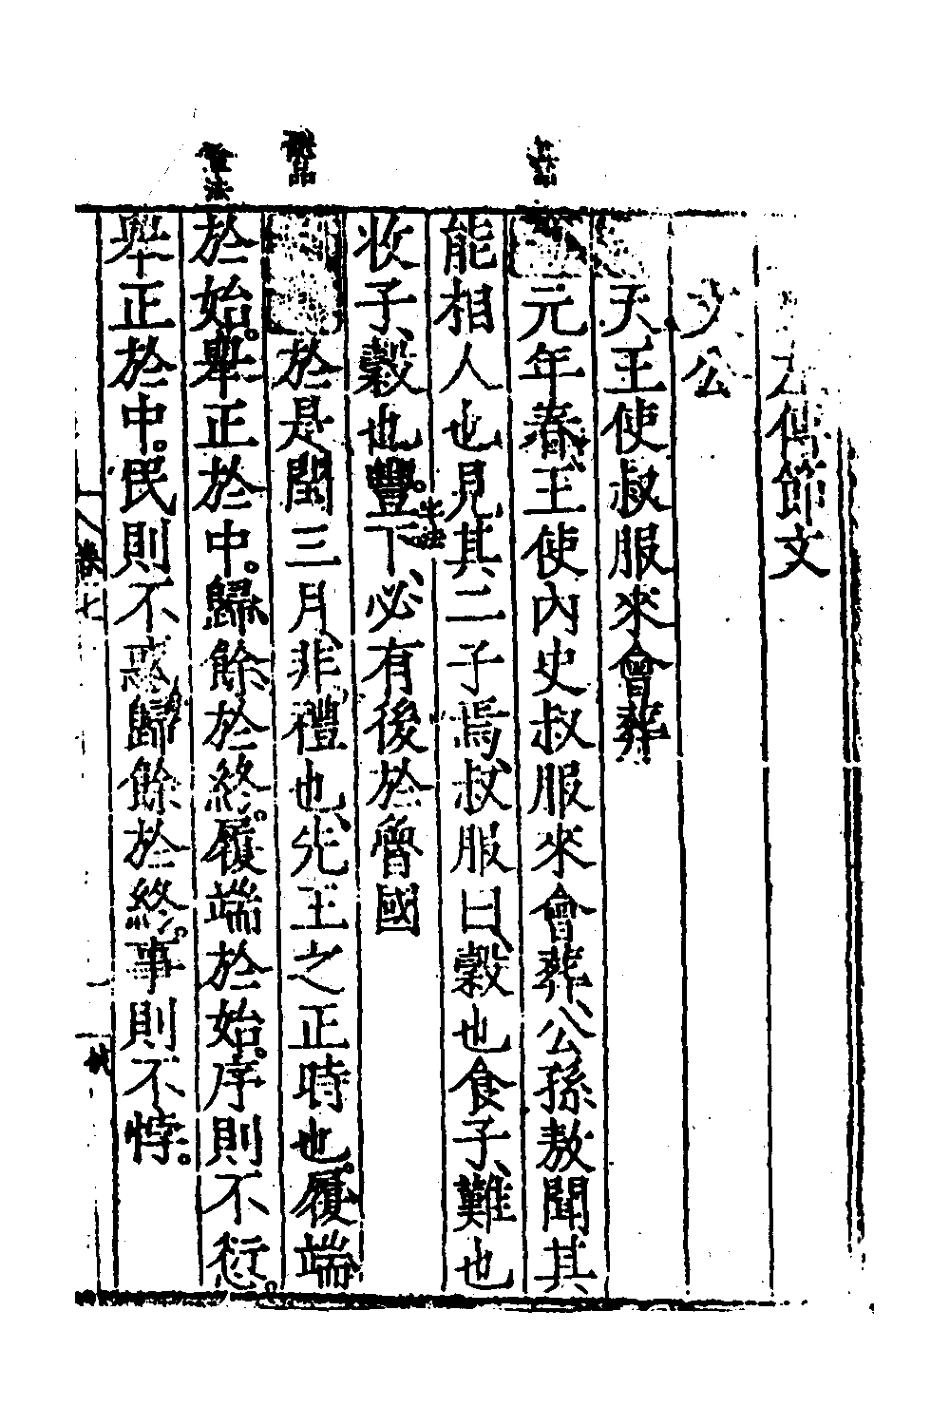 左傳節文
文公
天王使叔服來會葬
元年春王使內史叔服來會葬公孫敖聞其
能相人也見其二子焉叔服曰穀也食子難也
收子穀也豐下必有後於魯國
於是閏三月非禮也先王之正時也履端
於始舉正於中歸餘於終履端於始序則不愆
舉正於中民則不惑歸餘於終事則不悖
卷七
一